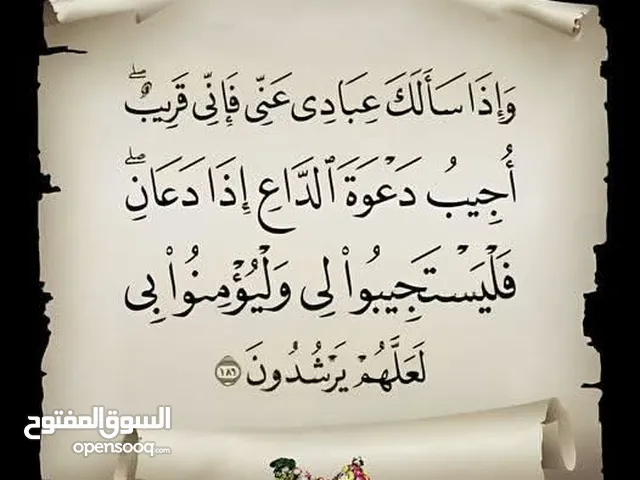 وَإِذَا سَأَلَكَ عِبَادِى عَنِّى فَإِنِّى قَرِيبٌ ۖ
أُجِيبُ دَعْوَةَ ٱلدَّاعِ إِذَا دَعَانِ ۖ
فَلْيَسْتَجِيبُوا۟ لِى وَلْيُؤْمِنُوا۟ بِى
لَعَلَّهُمْ يَرْشُدُونَ ١٨٦
السوق المفتوح
opensooq.com